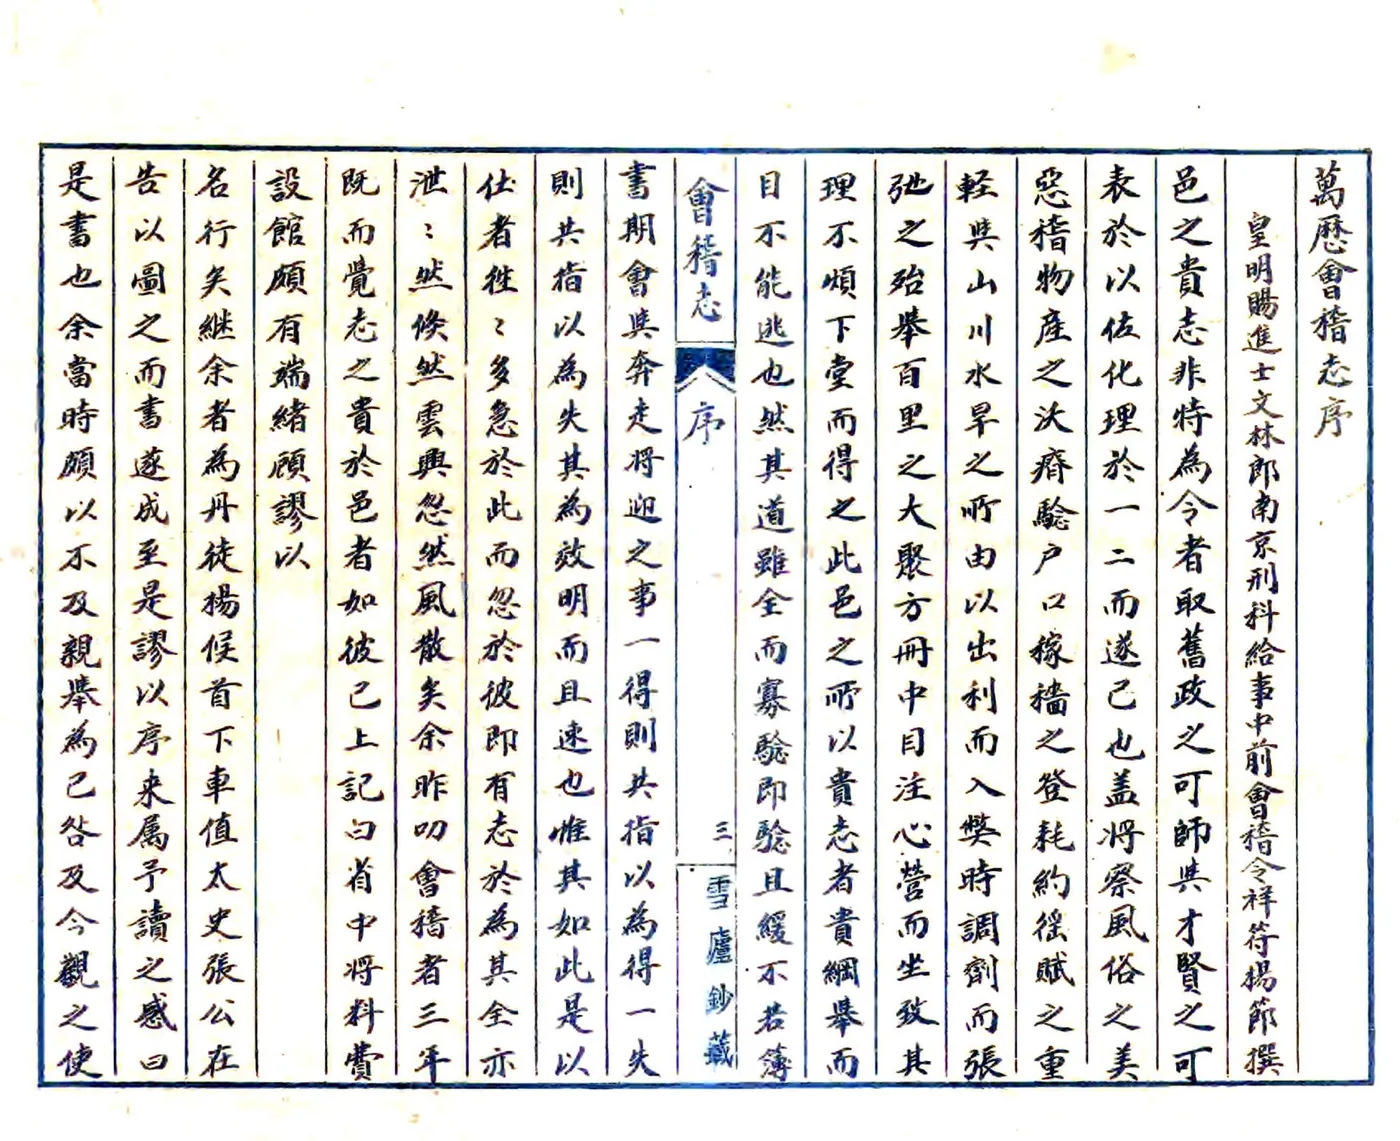 萬歷會稽志序
皇明賜進士文林郎南京刑科給事中前會稽令祥符楊節撰
邑之貴志非特為令者取舊政之可師與才賢之可
表於以佐化理於一二而遂已也盖將察風俗之美
惡稽物產之沃瘠驗户口稼穡之登耗約徭賦之重
軽與山川水旱之所由以出利而入獘時調劑而張
弛之殆舉百里之大聚方冊中目注心營而坐致其
理不煩下堂而得之此邑之所以貴志者貴綱舉而
目不能逃也然其道雖全而寡驗即驗且緩不若簿
會稽志
序
三
雪廬鈔藏
書期會與奔走将迎之事一得則共指以為得一失
則共指以為失其為效明而且速也惟其如此是以
仕者徃〻多急於此而忽於彼即有志於為其全亦
泄〻然倐然雲興忽然風散矣余昨叨會稽者三年
既而覺志之貴於邑者如彼已上記曰省中将料費
設館頗有端緒顧謬以
名行矣継余者為丹徒楊候首下車值太史張公在
告以圖之而書遂成至是謬以序来属予讀之感曰
是書也余當時頗以不及親舉為已咎及今觀之使